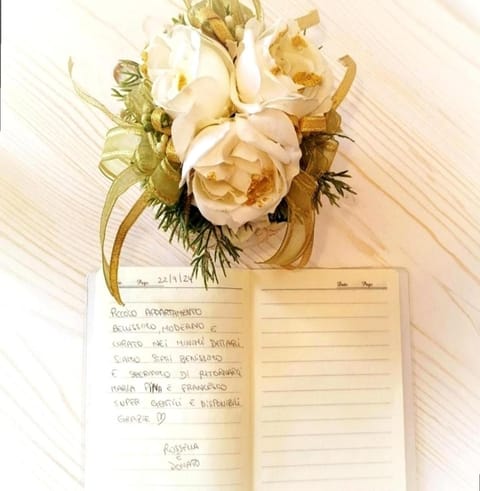 Date Page 22/4/24
Date Page
PICCOLO APPARTAMENTO
BELLISSIMO, MODERNO E
CURATO NEI MINIMI DETTAGLI.
SIAMO STATI BENISSIMO
E SPERIAMO DI RITORNARCI
MARIA PINA E FRANCESCO
SUPER GENTILI E DISPONIBILI
GRAZIE ♡
ROSSELLA
E
DONATO